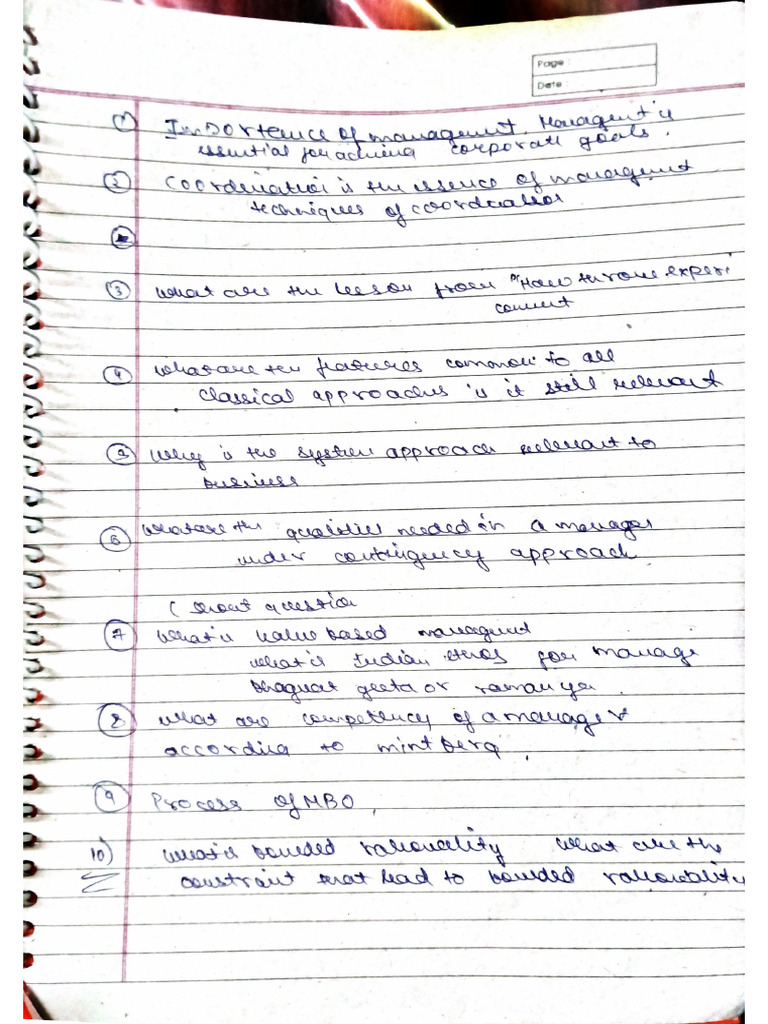 Page :
Date :
1) Importence of management. Managent is
essential for achieving corporate goals.
2) Coordination is the essence of management
techniques of coordination
3) What are the lesson from "Hawthrone experi
coment
4) What are the features common to all
classical approaches is it still relevant
Why is the system approach relevant to
business
6) What are the qualities needed in a manager
under contingency approach
( short question
7) What is value based managment
What is Indian ethos for manage
bhagwat geeta or ramanya.
8) What are competency of a manager
according to mintberg.
9) Process of MBO,
10) What is bounded rationality What are the
constraint that lead to bounded rationality